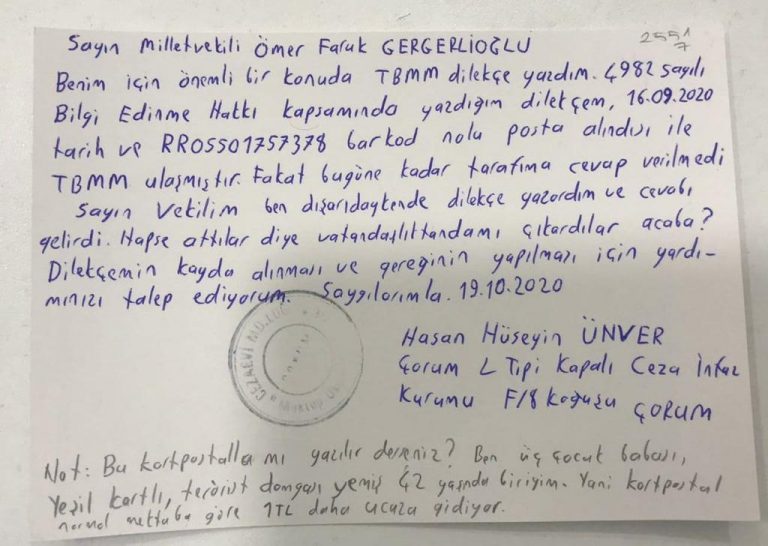 2551
7
Sayın Milletvekili Ömer Faruk GERGERLİOĞLU
Benim için önemli bir konuda TBMM dilekçe yazdım. 4982 sayılı
Bilgi Edinme Hakkı kapsamında yazdığım dilekçem, 16.09.2020
tarih ve RR05501757378 barkod nolu posta alındısı ile
TBMM ulaşmıştır. Fakat bugüne kadar tarafıma cevap verilmedi
Sayın Vekilim ben dışarıdaykende dilekçe yazardım ve cevabı
gelirdi. Hapse attılar diye vatandaşlıktandamı çıkardılar acaba?
Dilekçemin kayda alınması ve gereğinin yapılması için yardı-
mınızı talep ediyorum. Saygılarımla. 19.10.2020
Hasan Hüseyin ÜNVER
Çorum L Tipi Kapalı Ceza İnfaz
Kurumu F/8 Koğuşu ÇORUM
CEZAEVİ MÜD.LÜĞ
Mektup
Not: Bu kartpostalla mı yazılır derseniz? Ben üç çocuk babası,
Yeşil kartlı, terörist damgası yemiş 42 yaşında biriyim. Yani kartpostal
normal mektuba göre 1TL daha ucuza gidiyor.